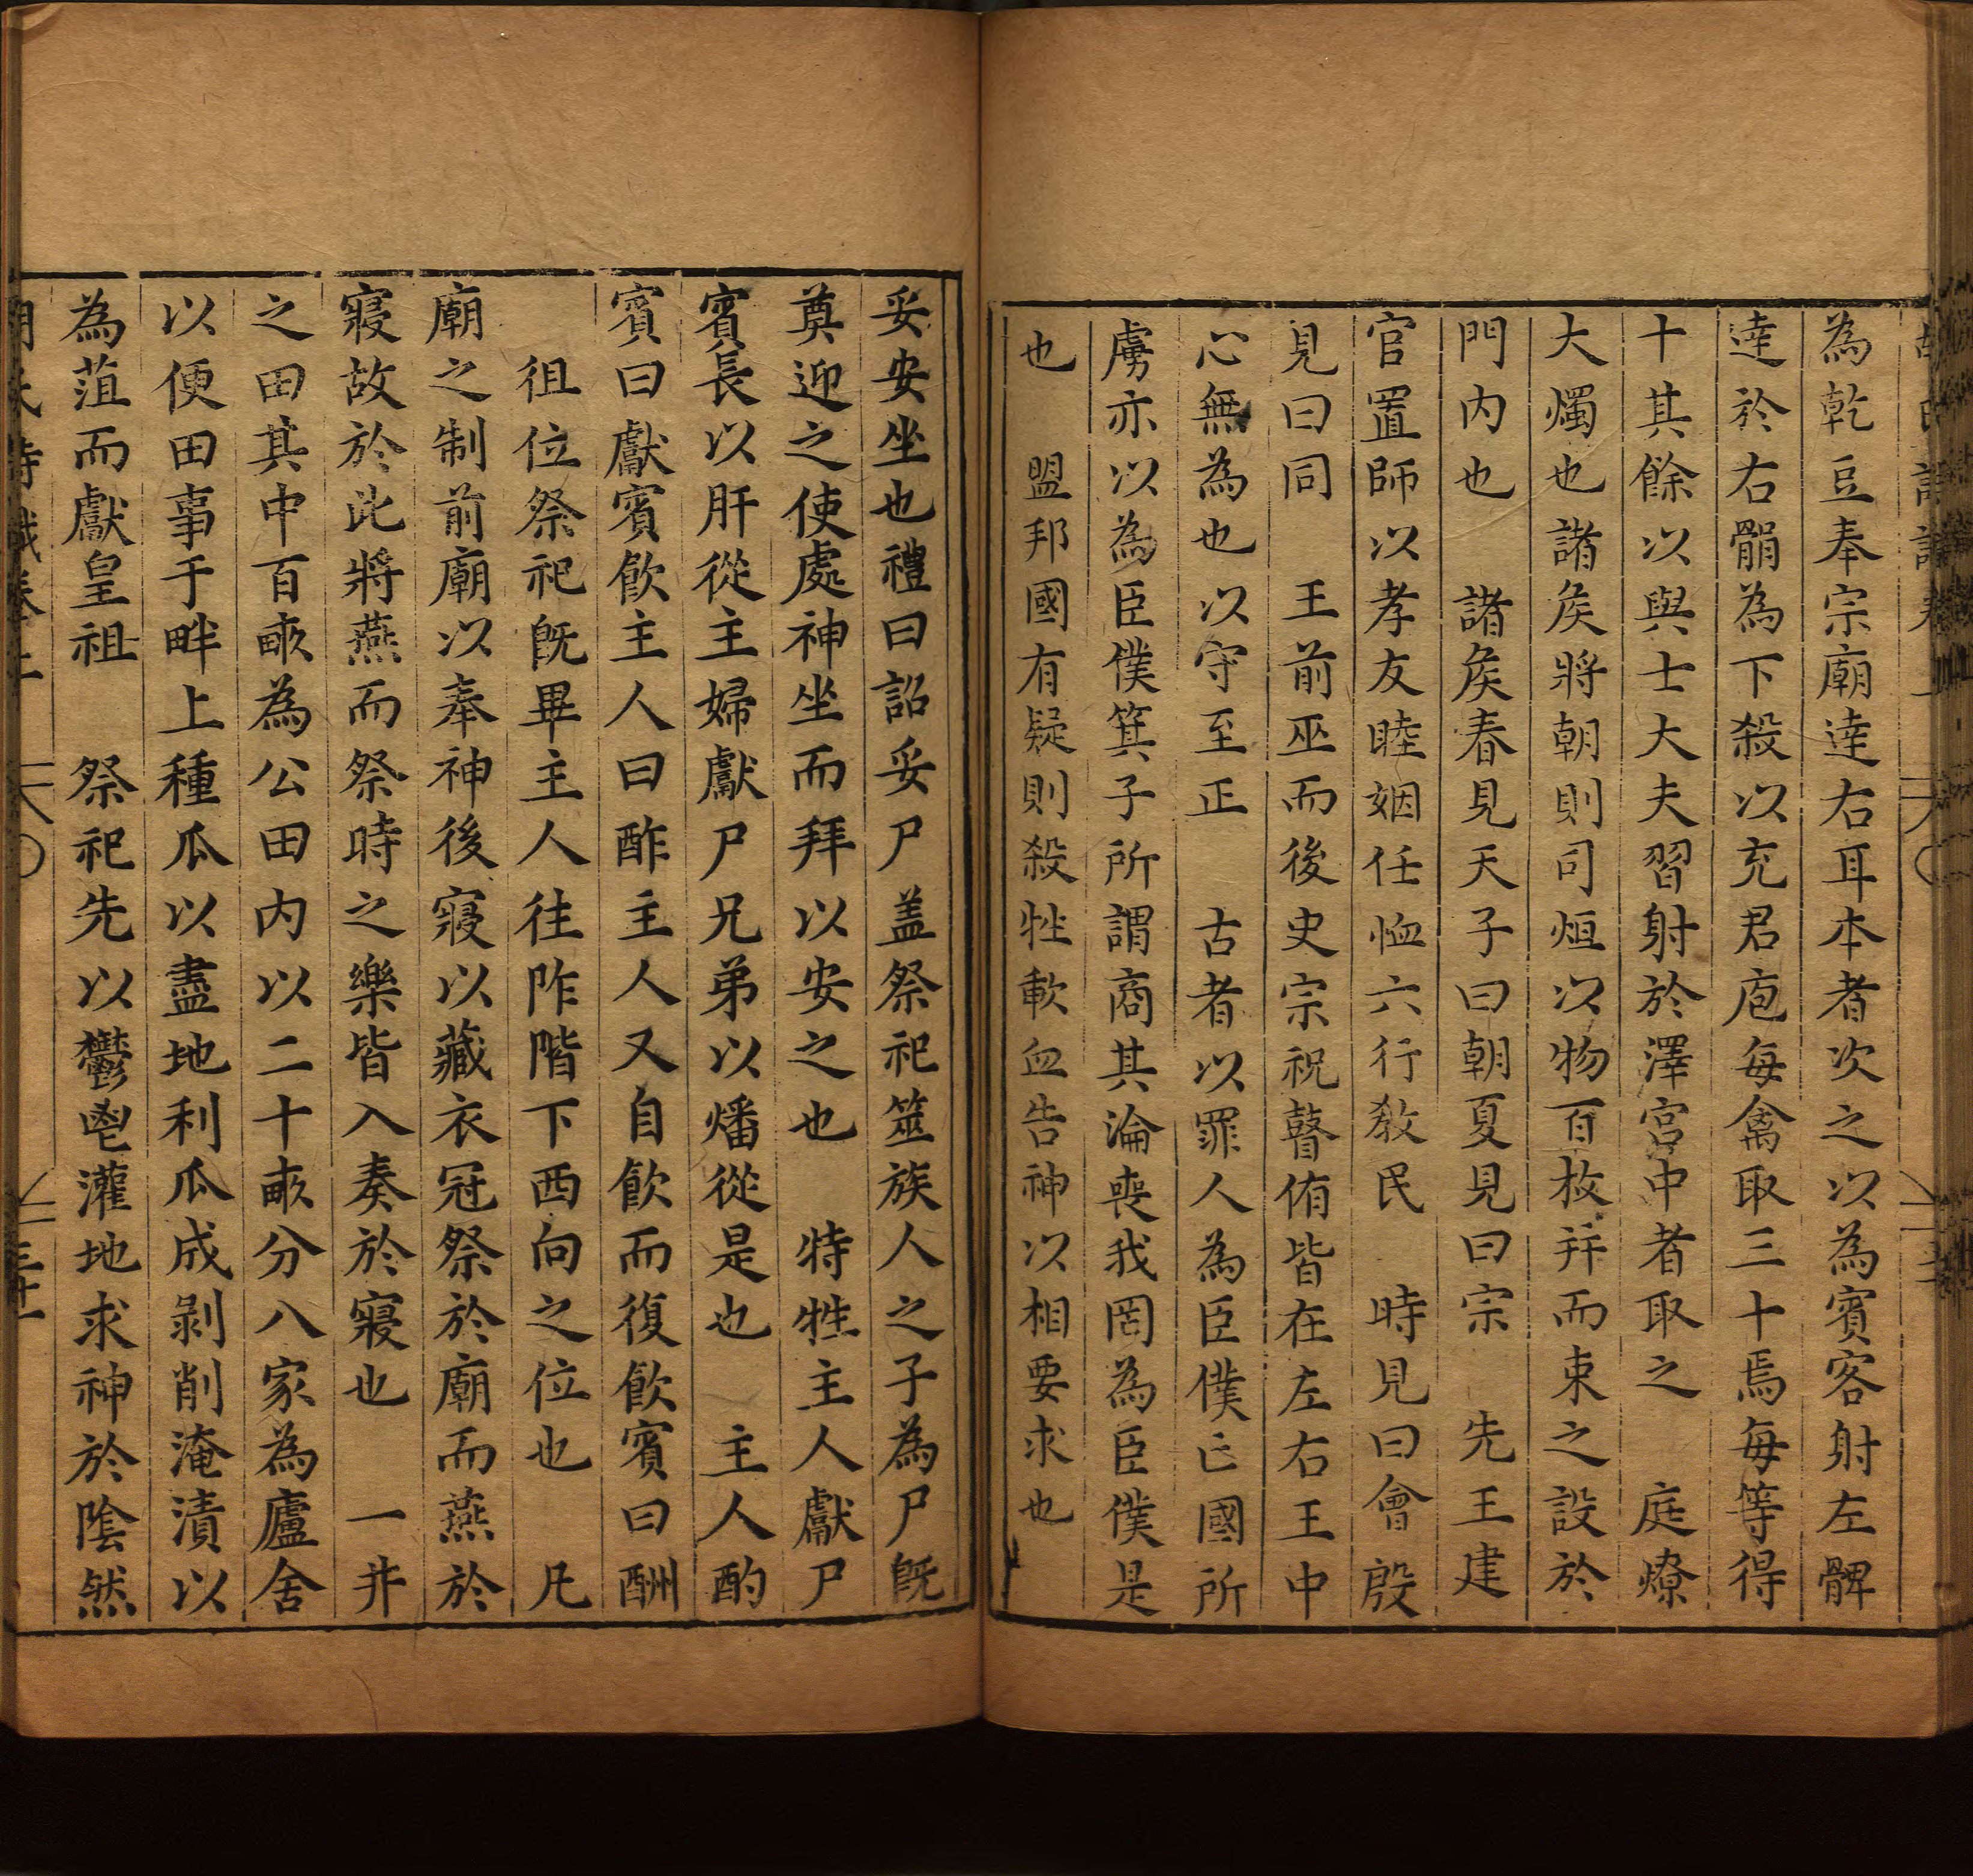 為乾豆奉宗廟達右耳本者次之以為賓客射左髀
達於右䯚為下殺以充君庖每禽取三十焉每等得
十其餘以與士大夫習射於澤宮中者取之　庭燎
大燭也諸矦將朝則司烜以物百枚幷而束之設於
門內也　諸矦春見天子曰朝夏見曰宗　先王建
官置師以孝友睦姻任恤六行敎民　時見曰會殷
見曰同　王前巫而後史宗祝瞽侑皆在左右王中
心無為也以守至正　古者以罪人為臣僕亡國所
虜亦以為臣僕箕子所謂商其淪喪我罔為臣僕是
也　盟邦國有疑則殺牲歃血告神以相要求也
妥安坐也禮曰詔妥尸盖祭祀筮族人之子為尸旣
奠迎之使處神坐而拜以安之也　特牲主人獻尸
賓長以肝從主婦獻尸兄弟以燔從是也　主人酌
賓曰獻賓飮主人曰酢主人又自飮而復飮賓曰酬
　徂位祭祀旣畢主人往阼階下西向之位也　凡
廟之制前廟以奉神後寢以藏衣冠祭於廟而燕於
寢故於此將燕而祭時之樂皆入奏於寢也　一井
之田其中百畝為公田內以二十畝分八家為廬舍
以便田事于畔上種瓜以盡地利瓜成剥削淹漬以
為菹而獻皇祖　祭祀先以鬱鬯灌地求神於陰然